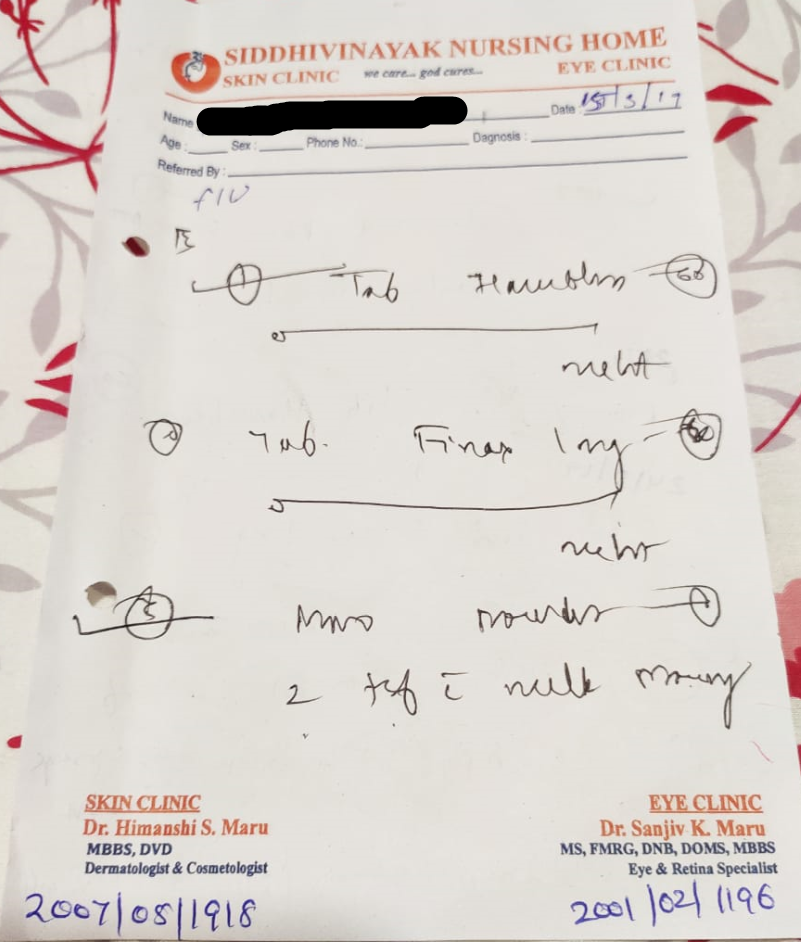 SIDDHIVINAYAK NURSING HOME
SKIN CLINIC we care... god cures... EYE CLINIC
Name Date: 15/3/17
Age: Sex: Phone No.: Dagnosis:
Referred By:
F/U
① Tab
night
Tab. Finax 1mg
night
powder
2 tsf c milk
SKIN CLINIC
Dr. Himanshi S. Maru
MBBS, DVD
Dermatologist & Cosmetologist
2007/05/1918
EYE CLINIC
Dr. Sanjiv K. Maru
MS, FMRG, DNB, DOMS, MBBS
Eye & Retina Specialist
2001/02/1196